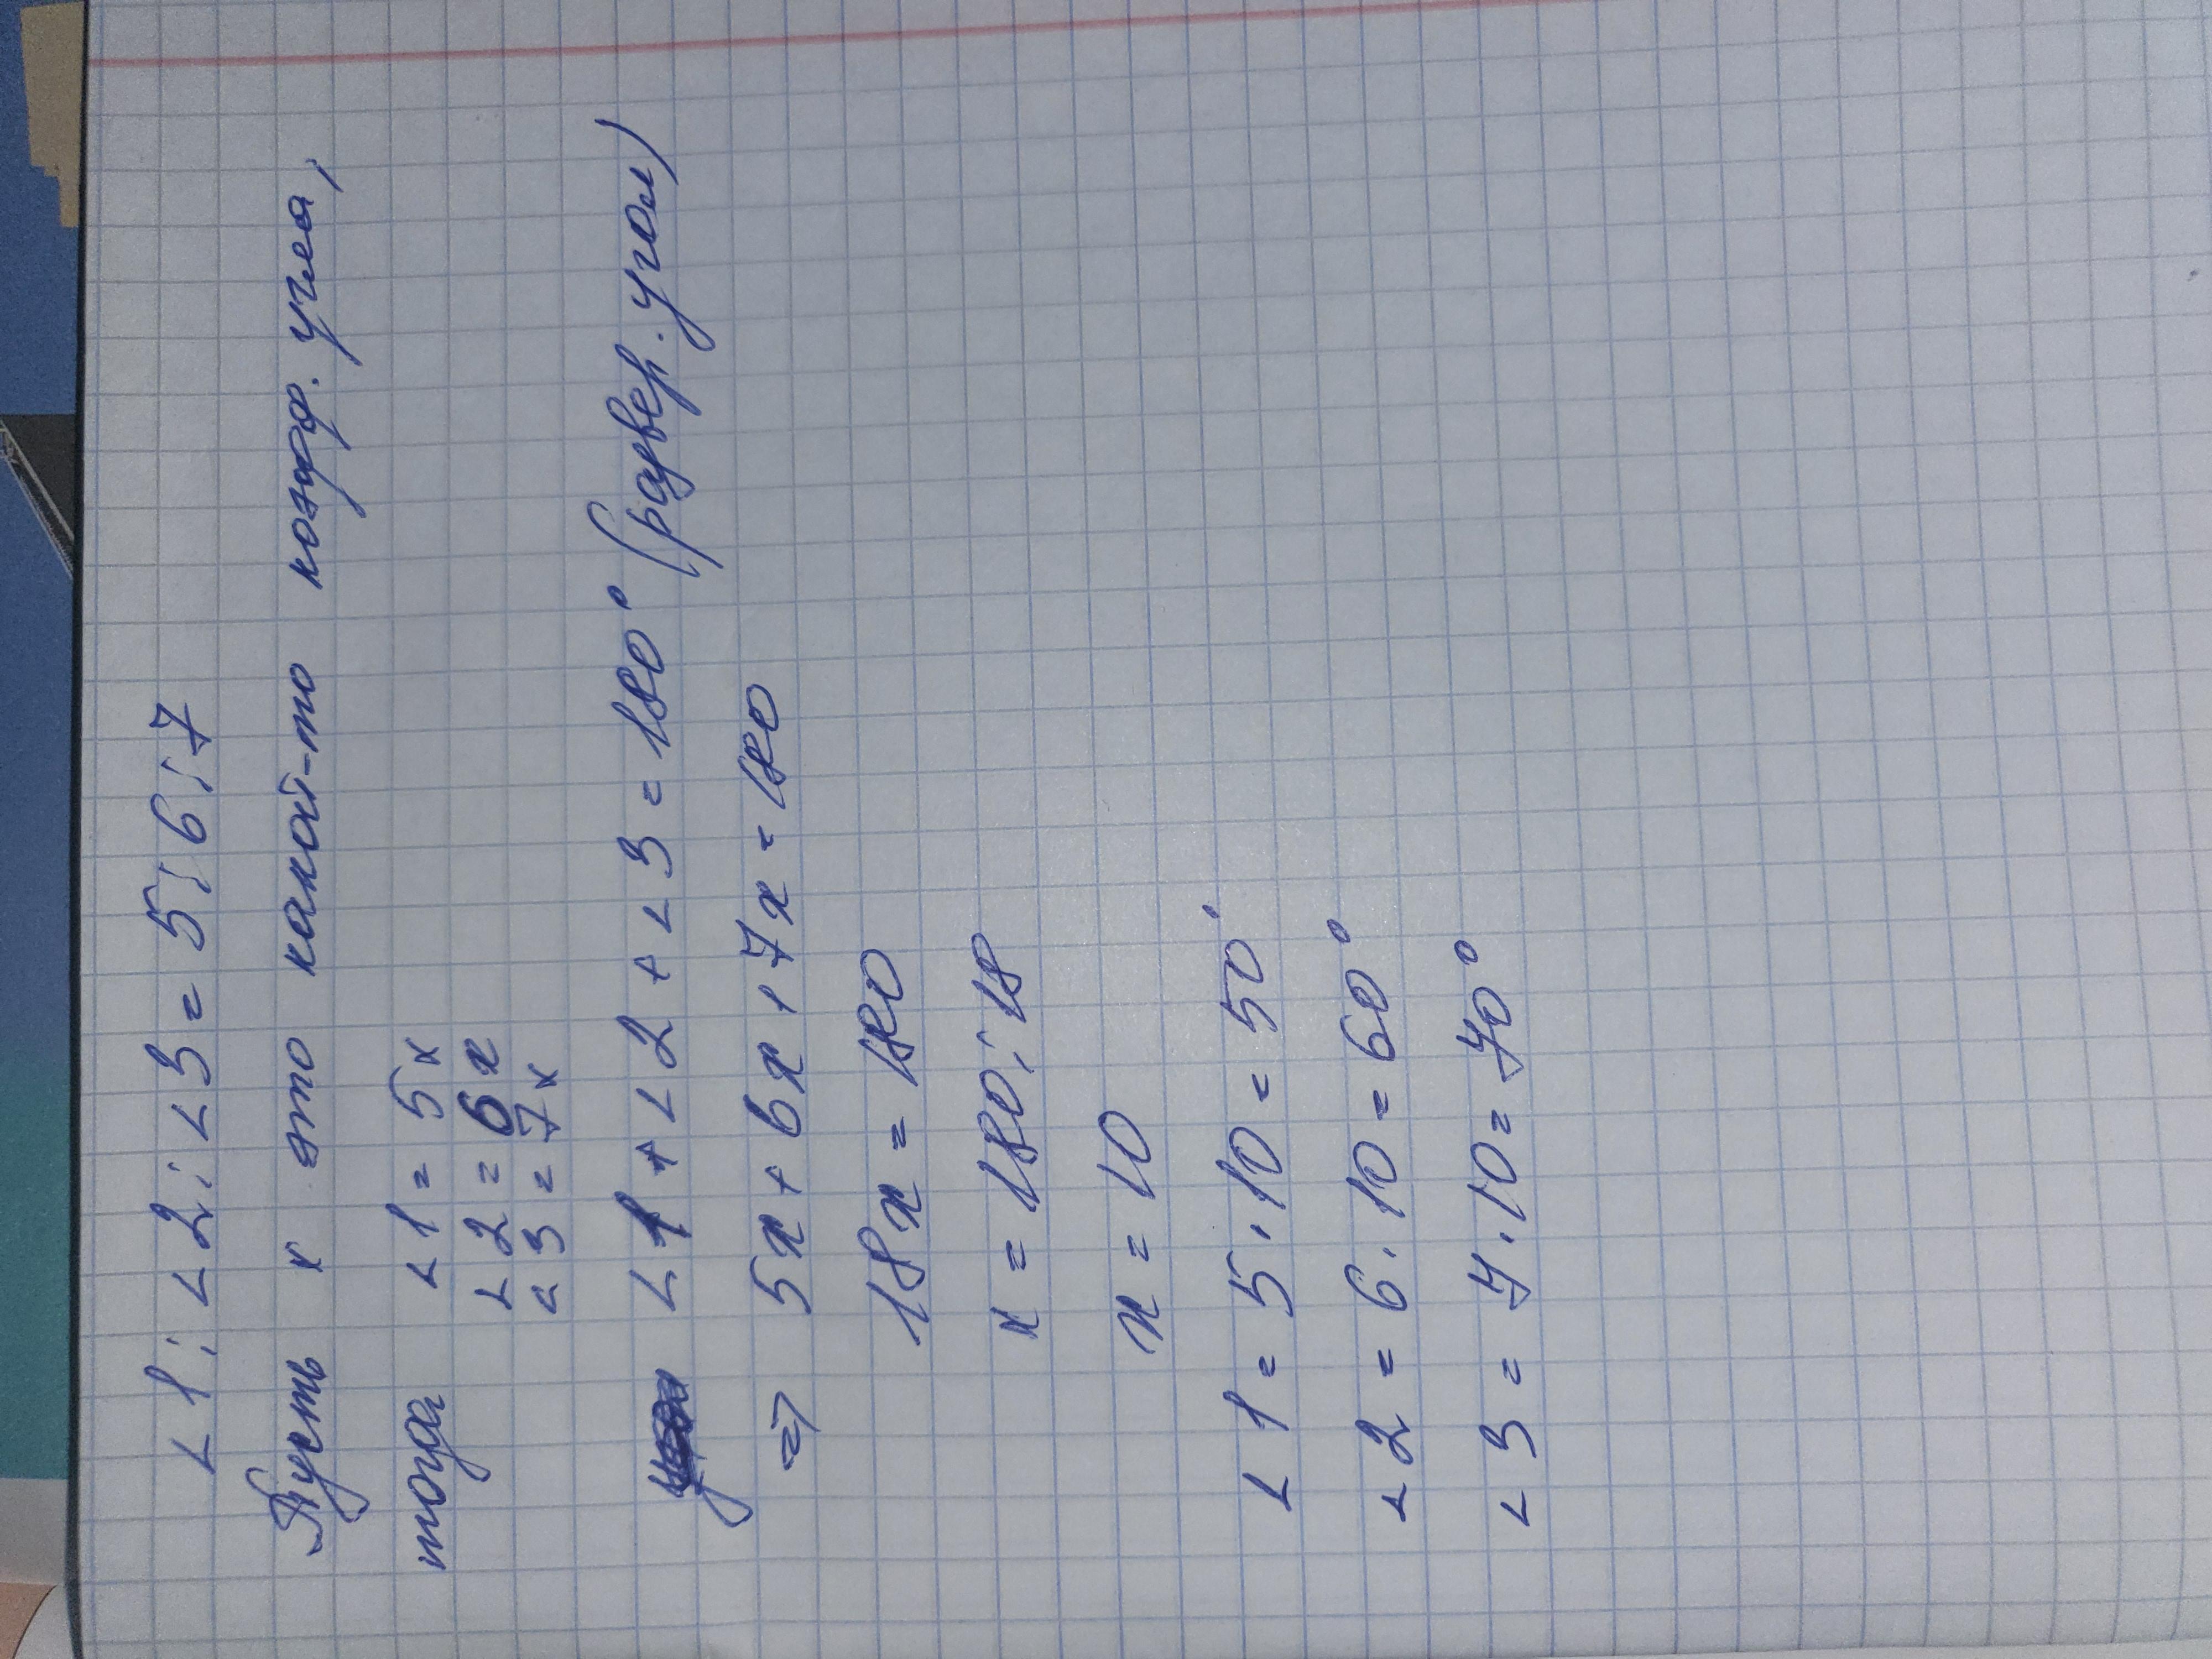 ∠1 : ∠2 : ∠3 = 5 : 6 : 7
Пусть х это какой-то коэфф. угла,
тогда ∠1 = 5х
∠2 = 6х
∠3 = 7х
∠1 + ∠2 + ∠3 = 180° (развер. угол)
=> 5х + 6х + 7х = 180
18х = 180
х = 180 : 18
х = 10
∠1 = 5 · 10 = 50°
∠2 = 6 · 10 = 60°
∠3 = 7 · 10 = 70°